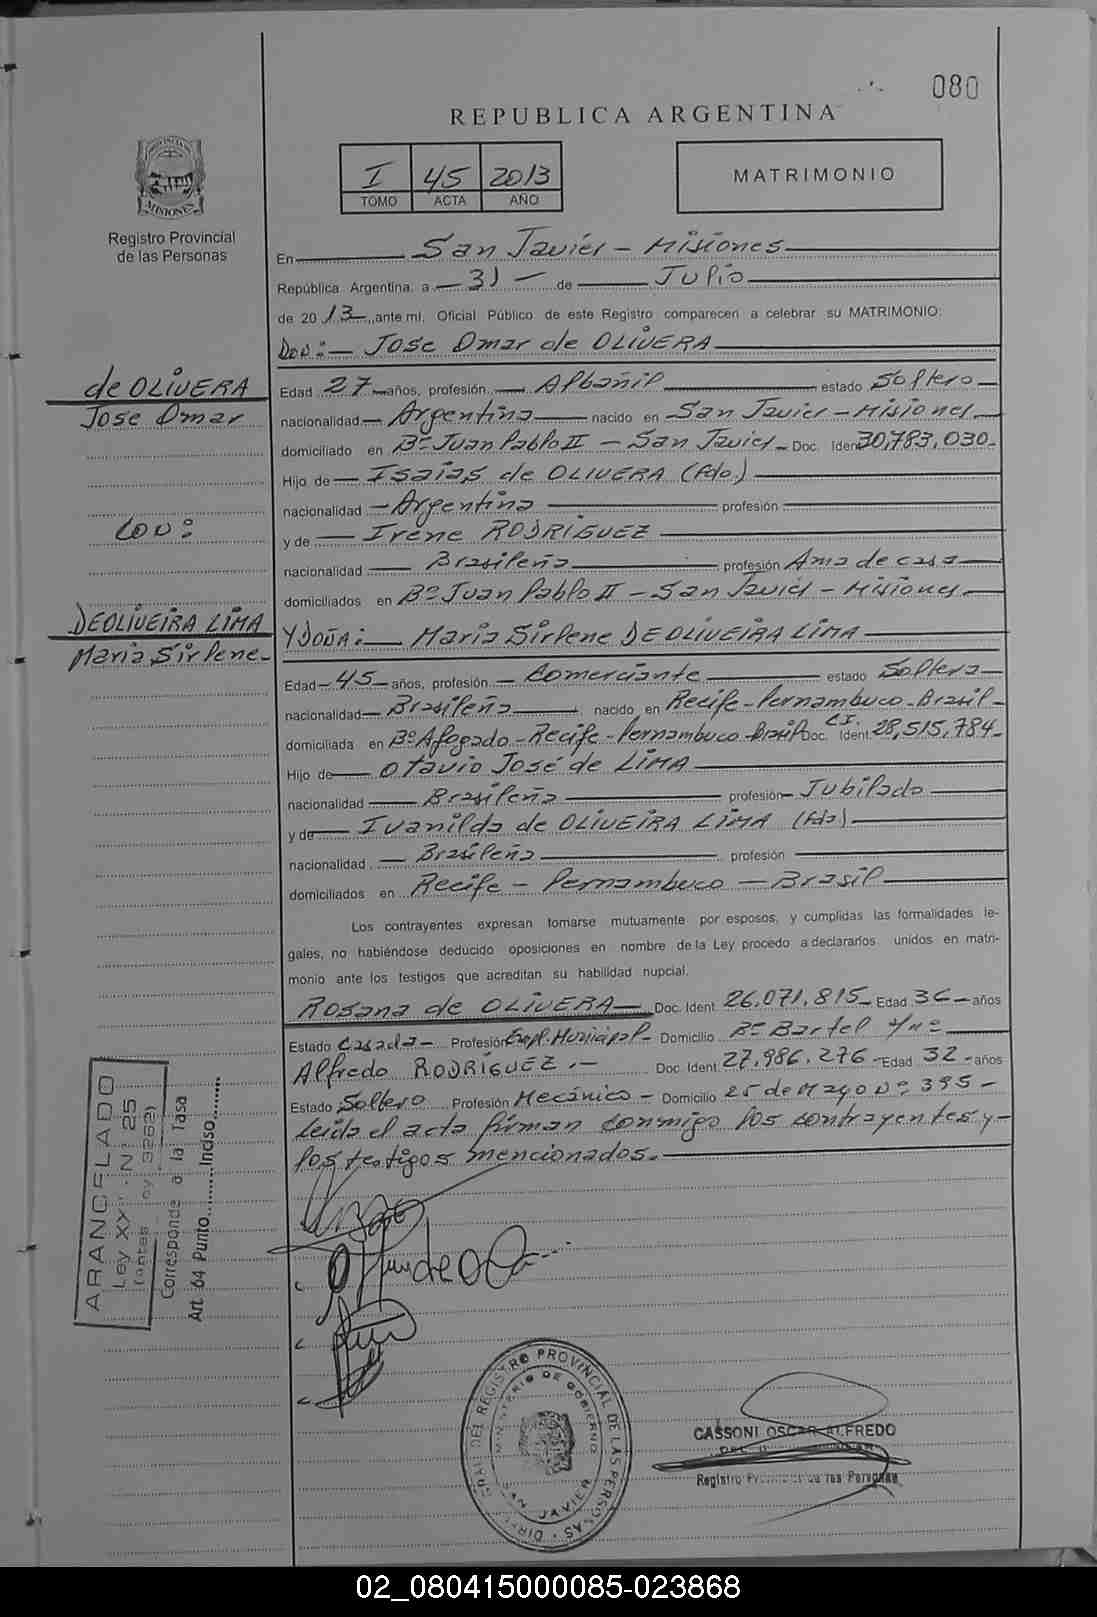 080
REPUBLICA ARGENTINA
I 45 2013
TOMO ACTA AÑO
MATRIMONIO
MISIONES
Registro Provincial
de las Personas
En San Javier - Misiones
República Argentina, a 31 de Julio
de 2013, ante mí, Oficial Público de este Registro comparecen a celebrar su MATRIMONIO:
Don: Jose Omar de OLIVERA
de OLIVERA
Jose Omar
Edad 27 años, profesión Albañil estado Soltero
nacionalidad Argentina nacido en San Javier - Misiones
domiciliado en Bº Juan Pablo II - San Javier - Doc. Ident 30,783,030-
Hijo de Isaías de OLIVERA (Fdo.)
nacionalidad Argentina profesión
CON:
y de Irene RODRIGUEZ
nacionalidad Brasileña profesión Ama de casa
domiciliados en Bº Juan Pablo II - San Javier - Misiones
DEOLIVEIRA LIMA
Maria Sirlene-
Y DOÑA: Maria Sirlene DEOLIVEIRA LIMA
Edad 45 años, profesión Comerciante estado Soltera
nacionalidad Brasileña nacido en Recife - Pernambuco - Brasil -
domiciliada en Bº Afogado - Recife - Pernambuco - Brasil Doc. C.I. Ident. 28,515,784-
Hijo de Otavio José de LIMA
nacionalidad Brasileña profesión Jubilado
y de Ivanilda de OLIVEIRA LIMA (Fda)
nacionalidad Brasileña profesión
domiciliados en Recife - Pernambuco - Brasil
Los contrayentes expresan tomarse mutuamente por esposos, y cumplidas las formalidades le-
gales, no habiéndose deducido oposiciones en nombre de la Ley procedo a declararlos unidos en matri-
monio ante los testigos que acreditan su habilidad nupcial.
Rosana de OLIVERA Doc. Ident. 26,071,815- Edad 36 años
Estado Casada - Profesión Empl. Municipal - Domicilio Bº Bartel s/nº
Alfredo RODRIGUEZ.- Doc. Ident. 27,986,276- Edad 32 años
Estado Soltero Profesión Mecánico - Domicilio 25 de Mayo Nº 395 -
Leída el acta firman conmigo los contrayentes y
los testigos mencionados.
ARANCELADO
Ley XVI - Nº 25
(antes Ley 3262)
Corresponde a la Tasa
Art. 64 Punto Inciso
REGISTRO PROVINCIAL DE LAS PERSONAS
MINISTERIO DE GOBIERNO
SAN JAVIER
CASSONI OSCAR ALFREDO
Registro Provincial de las Personas
02_080415000085-023868